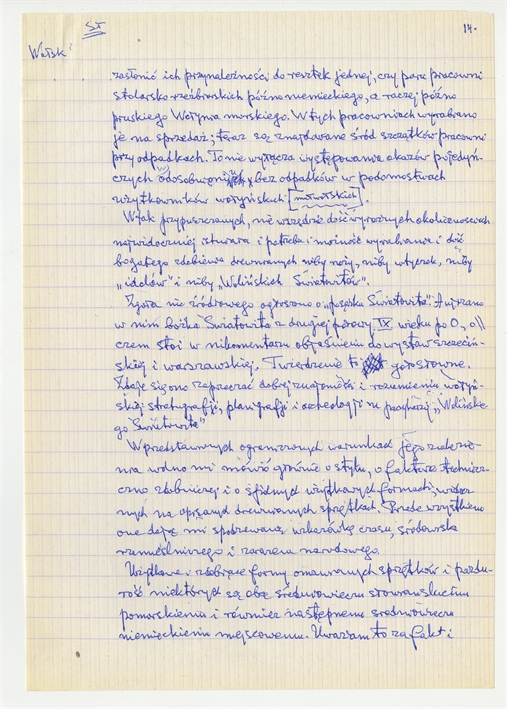 St
14.
Wolsk
zasłonić ich przynależności do resztek jednej, czy paru pracowni
stolarsko-rzeźbiarskich późno niemieckiego, a raczej późno
pruskiego Wolyna morskiego. W tych pracowniach wyrabiano
je na sprzedaż; teraz są znajdowane śród szczątków pracowni
przy odpadkach. To nie wyłącza występowania okazów pojedyń-
czych odosobnionych bez odpadków w podomostwach
użytkowników wolyńskich [ ].
W tak przypuszczanych, nie wszędzie dość wyraźnych okolicznościach
najwidoczniej stwarza i potrzeba i możność wyrabiania i dość
bogatego zdobienia drewnianych niby noży, niby wtyczek, niby
„idolów" i niby „Wolińskich Światowitów".
Zgoła nie źródłowego ogłoszono o „posążku Światowita". Ujrzano
w nim bożka Światowita z drugiej połowy IX wieku po O, o
czem stoi w komentarzu objaśnieniu do wystaw szczeciń-
skiej i warszawskiej. Twierdzenie to gołosłowne.
Zdaje się ono zaprzeczać dobrej znajomości i rozumieniu wolyń-
skiej stratygrafji, planigrafji i archeologji na przykładzie „Wolińskie-
go Światowita"
W przedstawionych ograniczonych warunkach jego znalezie-
nia wolno mi mówić głównie o stylu, o fakturze technicz-
czno zdobniczej i o i użytkowych formach, widocz-
nych na opisanych drewnianych sprzętkach. Przede wszystkiem
one dają mi spodziewaną wskazówkę czasu, środowiska
rzemieślniczego i narodowego.
Użytkowe i zdobiące formy omawianych sprzętków i
niektórych są obce średniowieczu słowiańskiemu
pomorskiemu i również następnemu średniowieczu
niemieckiemu miejscowemu. Uważam to za fakt i